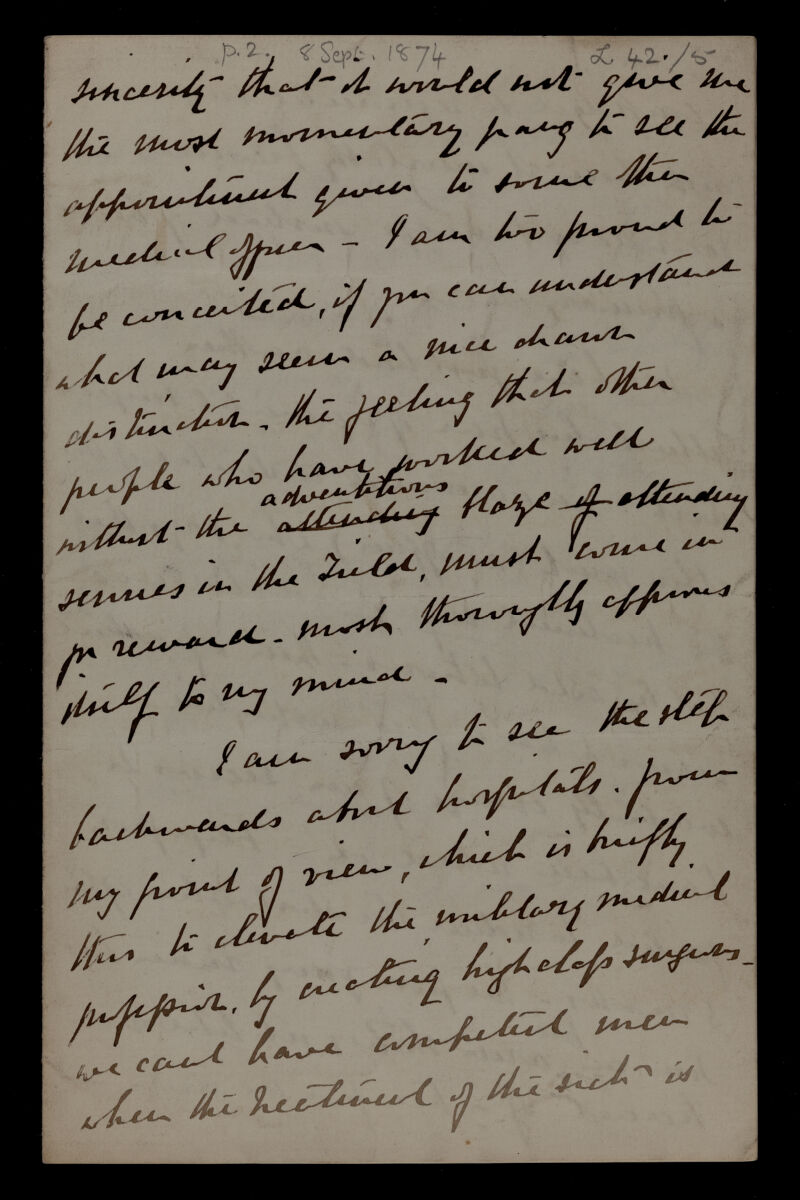 p. 2. 8 Sept. 1874 L 42./5
sincerity that it would not give me
the most momentary pang to see the
appointment given to some other
medical officer – I am too proud to
be conceited, if you can understand
what may seem a nice drawn
distinction – the feeling that other
people who have worked well
adventitious
without the attending blaze of attending
services in the Field, must come in
for reward – most thoroughly approves
itself to my mind –
I am sorry to see the step
backwards about hospitals. from
my point of view, which is briefly
this to elevate the military medical
profession, by creating high class surgeons –
we cant have competent men
when the treatment of the sick is